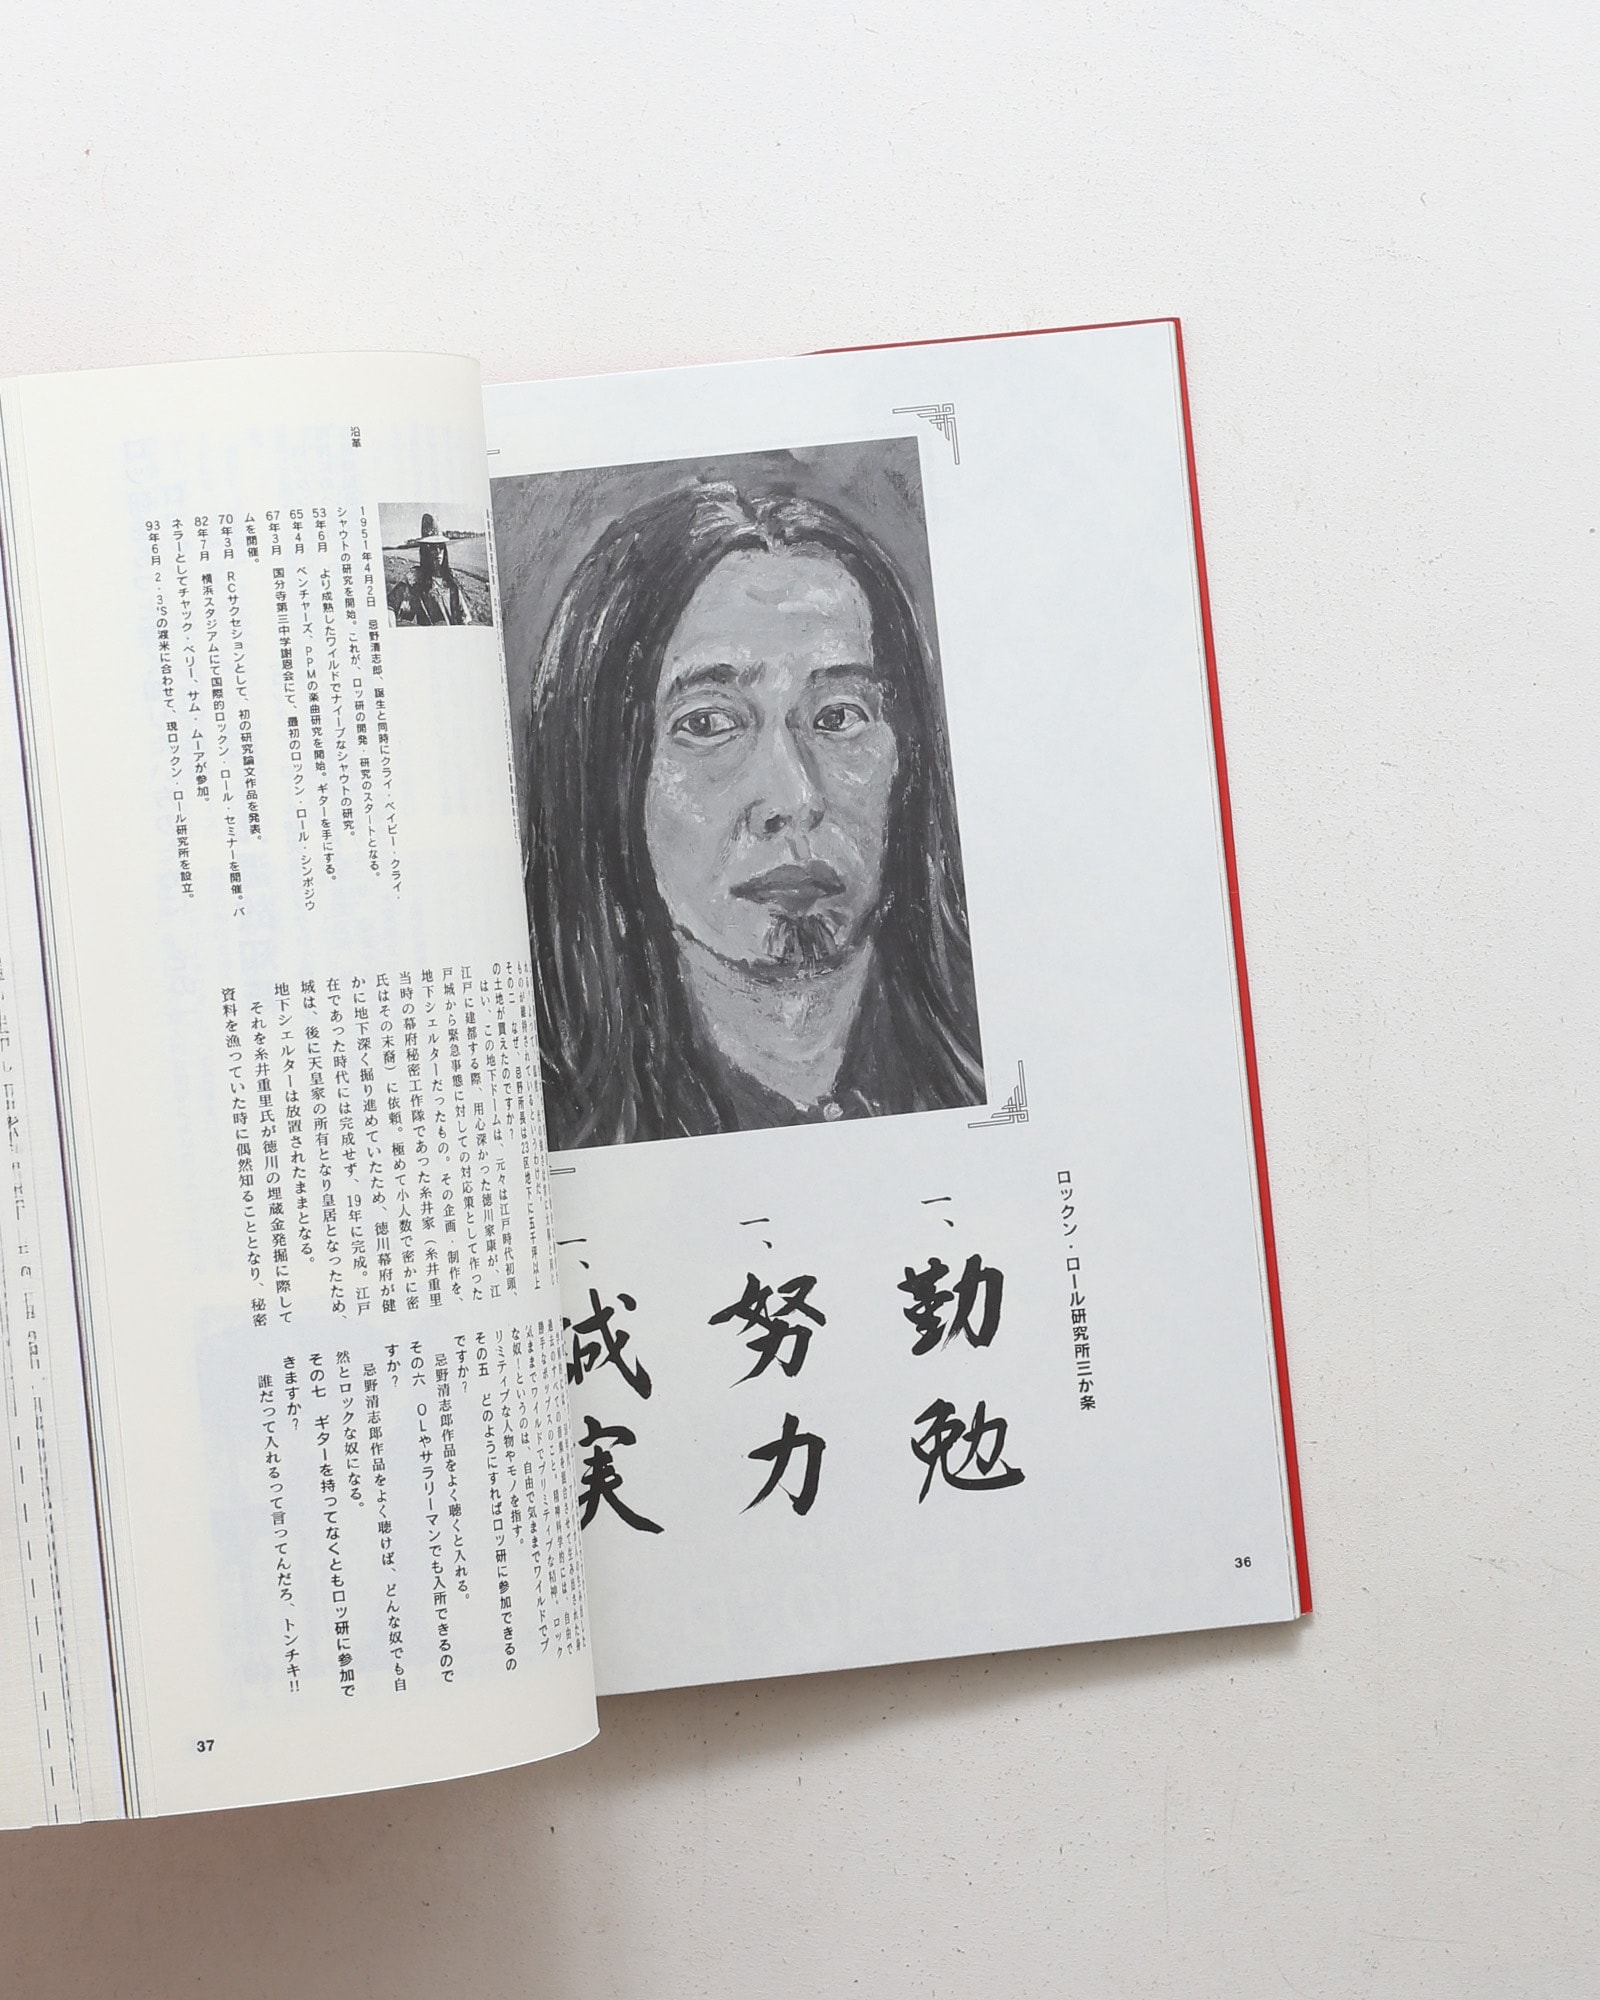 ロックン・ロール研究所三か条
一、勤勉
一、努力
一、誠実
36
沿革
1951年4月2日　忌野清志郎、誕生と同時にクライ・ベイビー・クライ・
シャウトの研究を開始。これが、ロッ研の開発・研究のスタートとなる。
53年6月　より成熟したワイルドでナイーブなシャウトの研究。
65年4月　ベンチャーズ、PPMの楽曲研究を開始。ギターを手にする。
67年3月　国分寺第三中学謝恩会にて、最初のロックン・ロール・シンポジウ
ムを開催。
70年3月　RCサクセションとして、初の研究論文作品を発表。
82年7月　横浜スタジアムにて国際的ロックン・ロール・セミナーを開催。パ
ネラーとしてチャック・ベリー、サム・ムーアが参加。
93年6月　2・3'Sの渡米に合わせて、現ロックン・ロール研究所を設立。
ものが維持されているというわけだ。
その二　なぜ、忌野所長は23区地下に五千坪以上
の土地が買えたのですか？
はい、この地下ドームは、元々は江戸時代初頭、
江戸に建都する際、用心深かった徳川家康が、江
戸城から緊急事態に対しての対応策として作った
地下シェルターだったもの。その企画・制作を、
当時の幕府秘密工作隊であった糸井家（糸井重里
氏はその末裔）に依頼。極めて小人数で密かに密
かに地下深く掘り進めていたため、徳川幕府が健
在であった時代には完成せず、19年に完成。江戸
城は、後に天皇家の所有となり皇居となったため、
地下シェルターは放置されたままとなる。
それを糸井重里氏が徳川の埋蔵金発掘に際して
資料を漁っていた時に偶然知ることとなり、秘密
過去のすべての
勝手なポップスのこと。精神科学的には、自由で
気ままでワイルドでプリミティブな精神。ロック
な奴！というのは、自由で気ままでワイルドでプ
リミティブな人物やモノを指す。
その五　どのようにすればロッ研に参加できるの
ですか？
忌野清志郎作品をよく聴くと入れる。
その六　OLやサラリーマンでも入所できるので
すか？
忌野清志郎作品をよく聴けば、どんな奴でも自
然とロックな奴になる。
その七　ギターを持ってなくともロッ研に参加で
きますか？
誰だって入れるって言ってんだろ、トンチキ!!
37